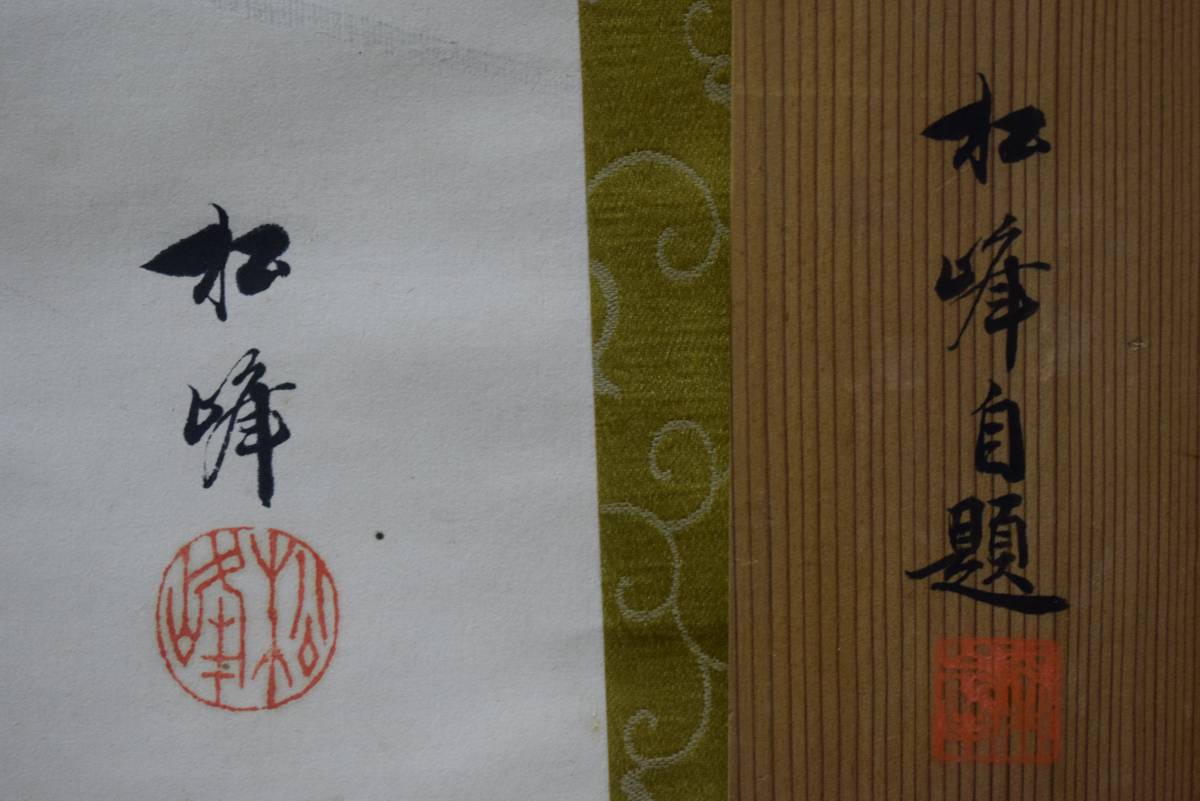 松峰
松峰
松峰自題